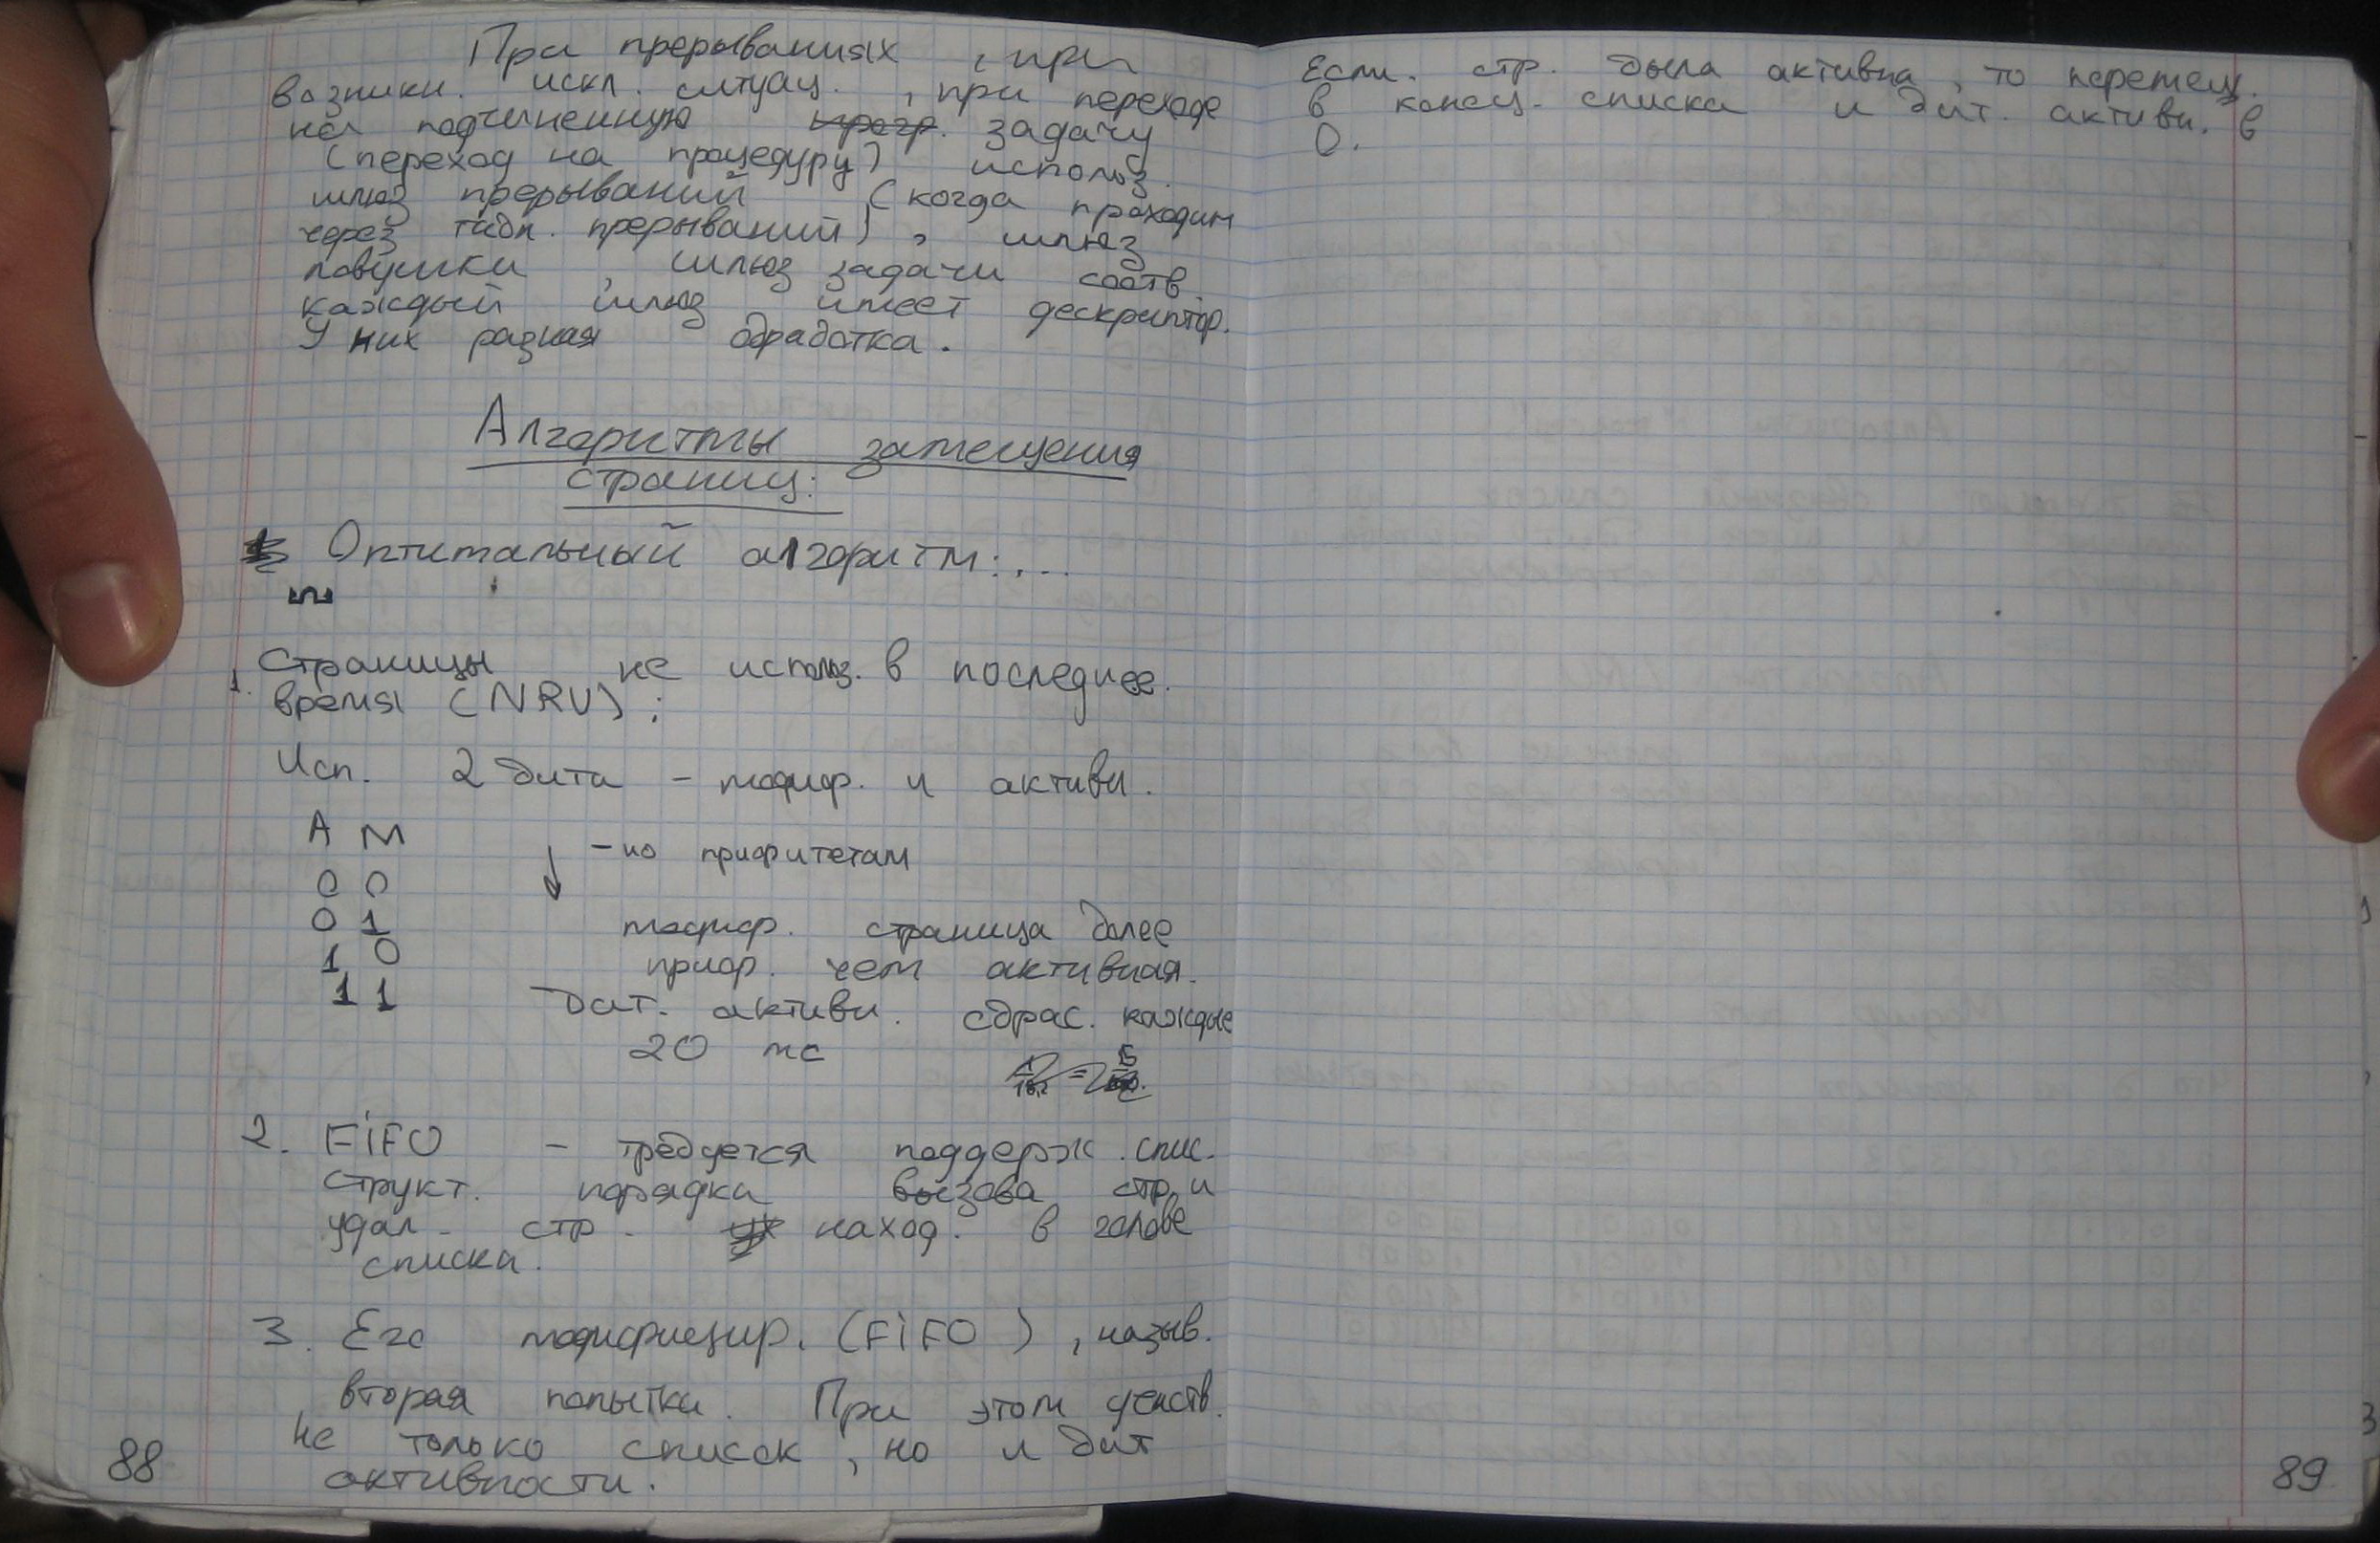 При прерываниях , при
возникн. искл. ситуац. , при переходе
на подчиненную прогр. задачу
(переход на процедуру) использ.
шлюз прерываний (когда проходим
через табл. прерываний) , шлюз
ловушки , шлюз задачи соотв.
каждый шлюз имеет дескриптор.
У них разная обработка .
Алгоритмы замещения
страниц:
Оптимальный алгоритм: ...
1. Страницы не использ. в последнее.
время (NRU) :
Исп. 2 бита – модиф. и активн.
А М
↓ – по приоритетам
0 0
0 1 модиф. страница более
1 0 приор. чем активная.
1 1 Бит. активн. сбрас. каждые
20 мс
2. FiFO – требуется поддерж. спис.
структ. порядка вызова стр. и
удал. стр. наход. в голове
списка.
3. Его модифицир. (FiFO) , назыв.
вторая попытка. При этом действ.
не только список , но и бит
активности.
88
Если. стр. была активна , то перемещ.
в конец. списка и бит. активн. в
0.
89